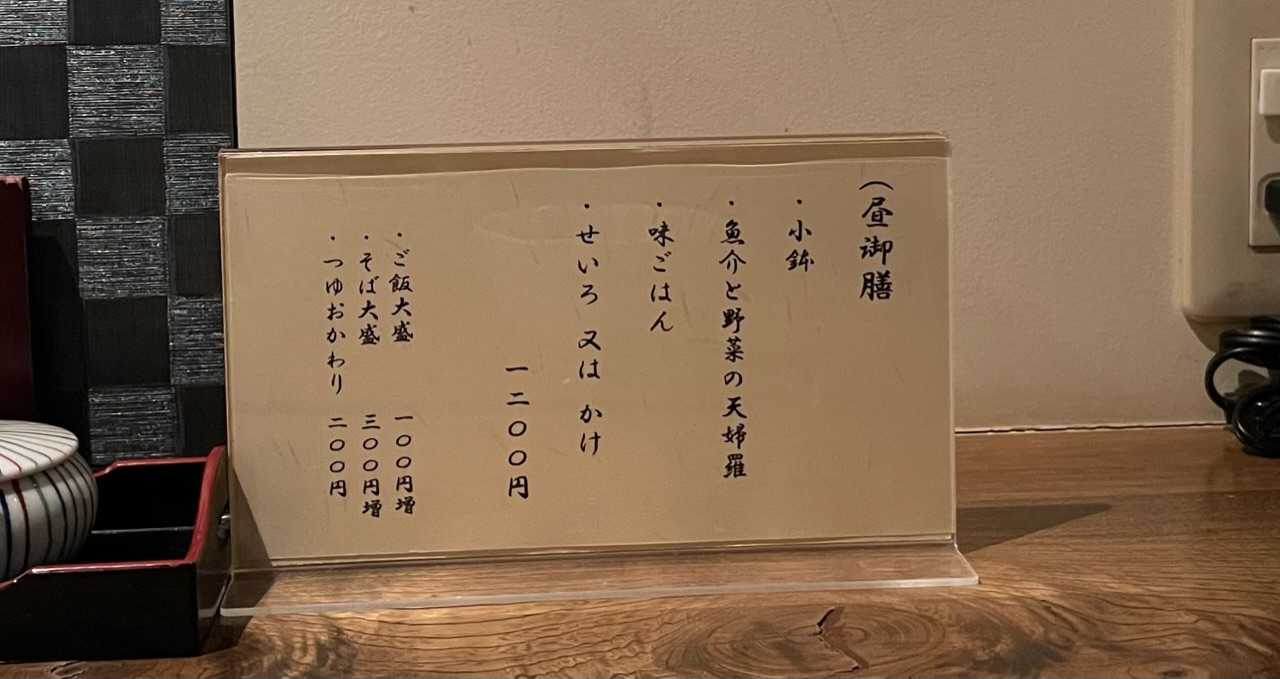 (昼御膳
・小鉢
・魚介と野菜の天婦羅
・味ごはん
・せいろ 又は かけ
一二〇〇円
・ご飯大盛 一〇〇円増
・そば大盛 三〇〇円増
・つゆおかわり 二〇〇円